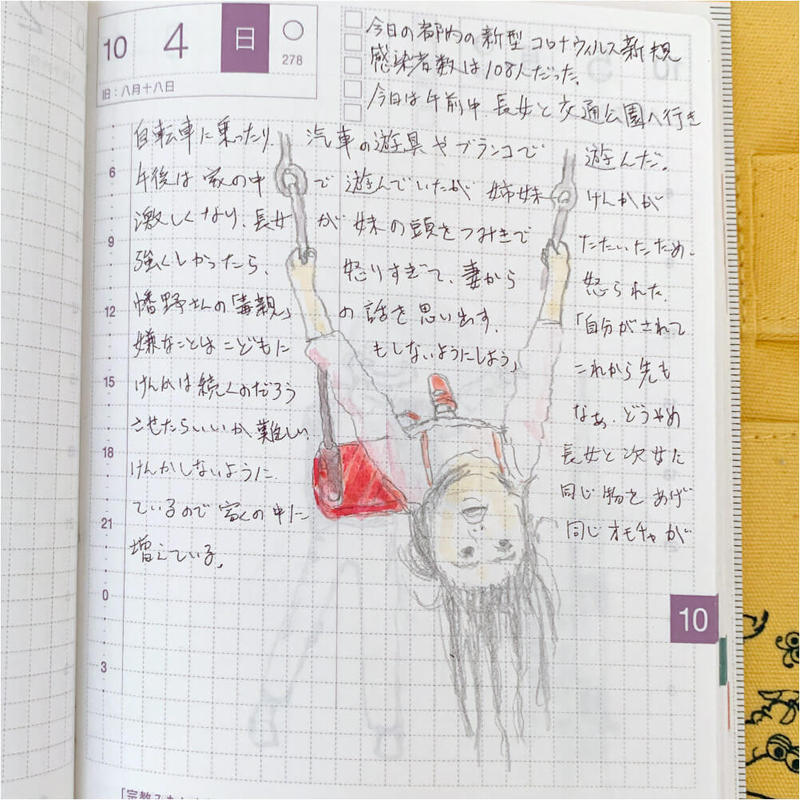 10 4 日 ○
278
旧:八月十八日
今日の都内の新型コロナウィルス新規
感染者数は108人だった。
今日は午前中 長女と交通公園へ行き
自転車に乗ったり、汽車の遊具やブランコで 遊んだ。
午後は家の中で遊んでいたが 姉妹けんかが
激しくなり、長女が妹の頭をつみきで たたいたため、
強くしかったら、怒りすぎて、妻から 怒られた。
幡野さんの「毒親」の話を思い出す。「自分がされて
嫌なことはこどもにもしないようにしよう」これから先も
けんかは続くのだろうなぁ。どうやめ
させたらいいか難しい。長女と次女に
けんかしないように同じ物をあげ
ているので家の中に同じオモチャが
増えている。
6
9
12
15
18
21
0
3
10